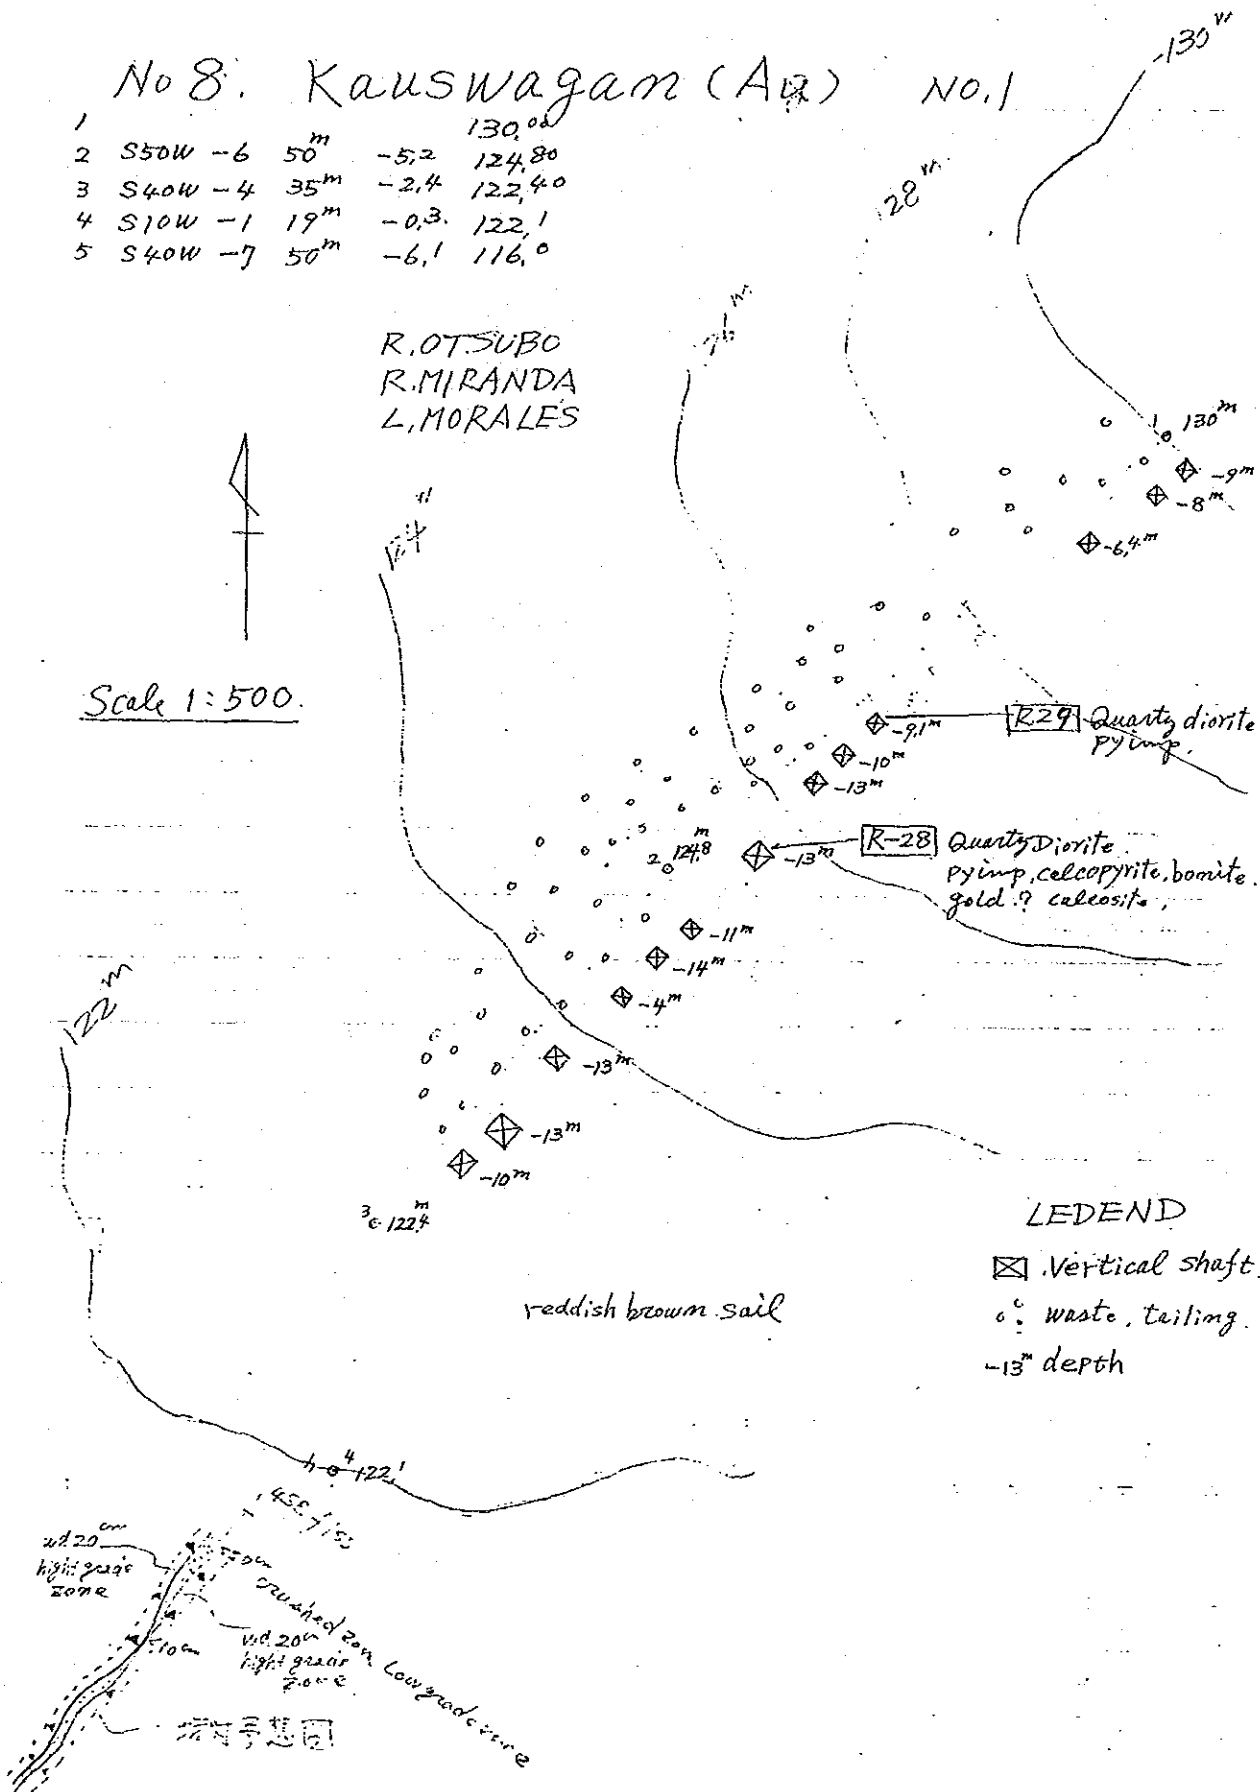 No 8. Kauswagan (Au) NO.1
1 130.00
2 S50W -6 50m -5,2 124,80
3 S40W -4 35m -2,4 122,40
4 S10W -1 19m -0,3. 122,1
5 S40W -7 50m -6,1 116,0
R.OTSUBO
R.MIRANDA
L.MORALES
130m
128m
126m
124m
122m
Scale 1:500.
1 130m
-9m
-8m
-6,4m
-9,1m
R29 Quartz diorite
py imp.
-10m
-13m
2 124,8m
-13m
R-28 Quartz Diorite
py imp, calcopyrite, bornite.
gold ? calcosite,
-11m
-14m
-4m
-13m
-13m
-10m
3 122,4m
LEDEND
Vertical shaft.
waste, tailing.
-13m depth
reddish brown sail
4 122,1
wd.20cm
hight grade
zone
crushed zone Low grade zone
10cm
wd.20cm
hight grade
zone